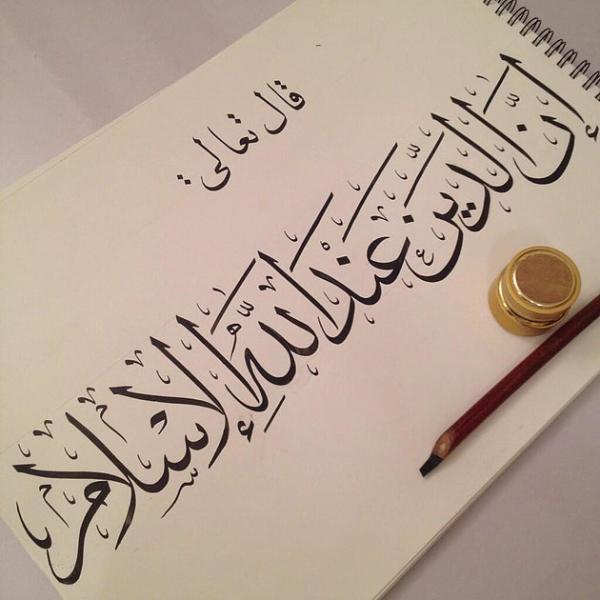 قال تعالى:
إنَّ الدِّين عندَ اللَّهِ الإسلام